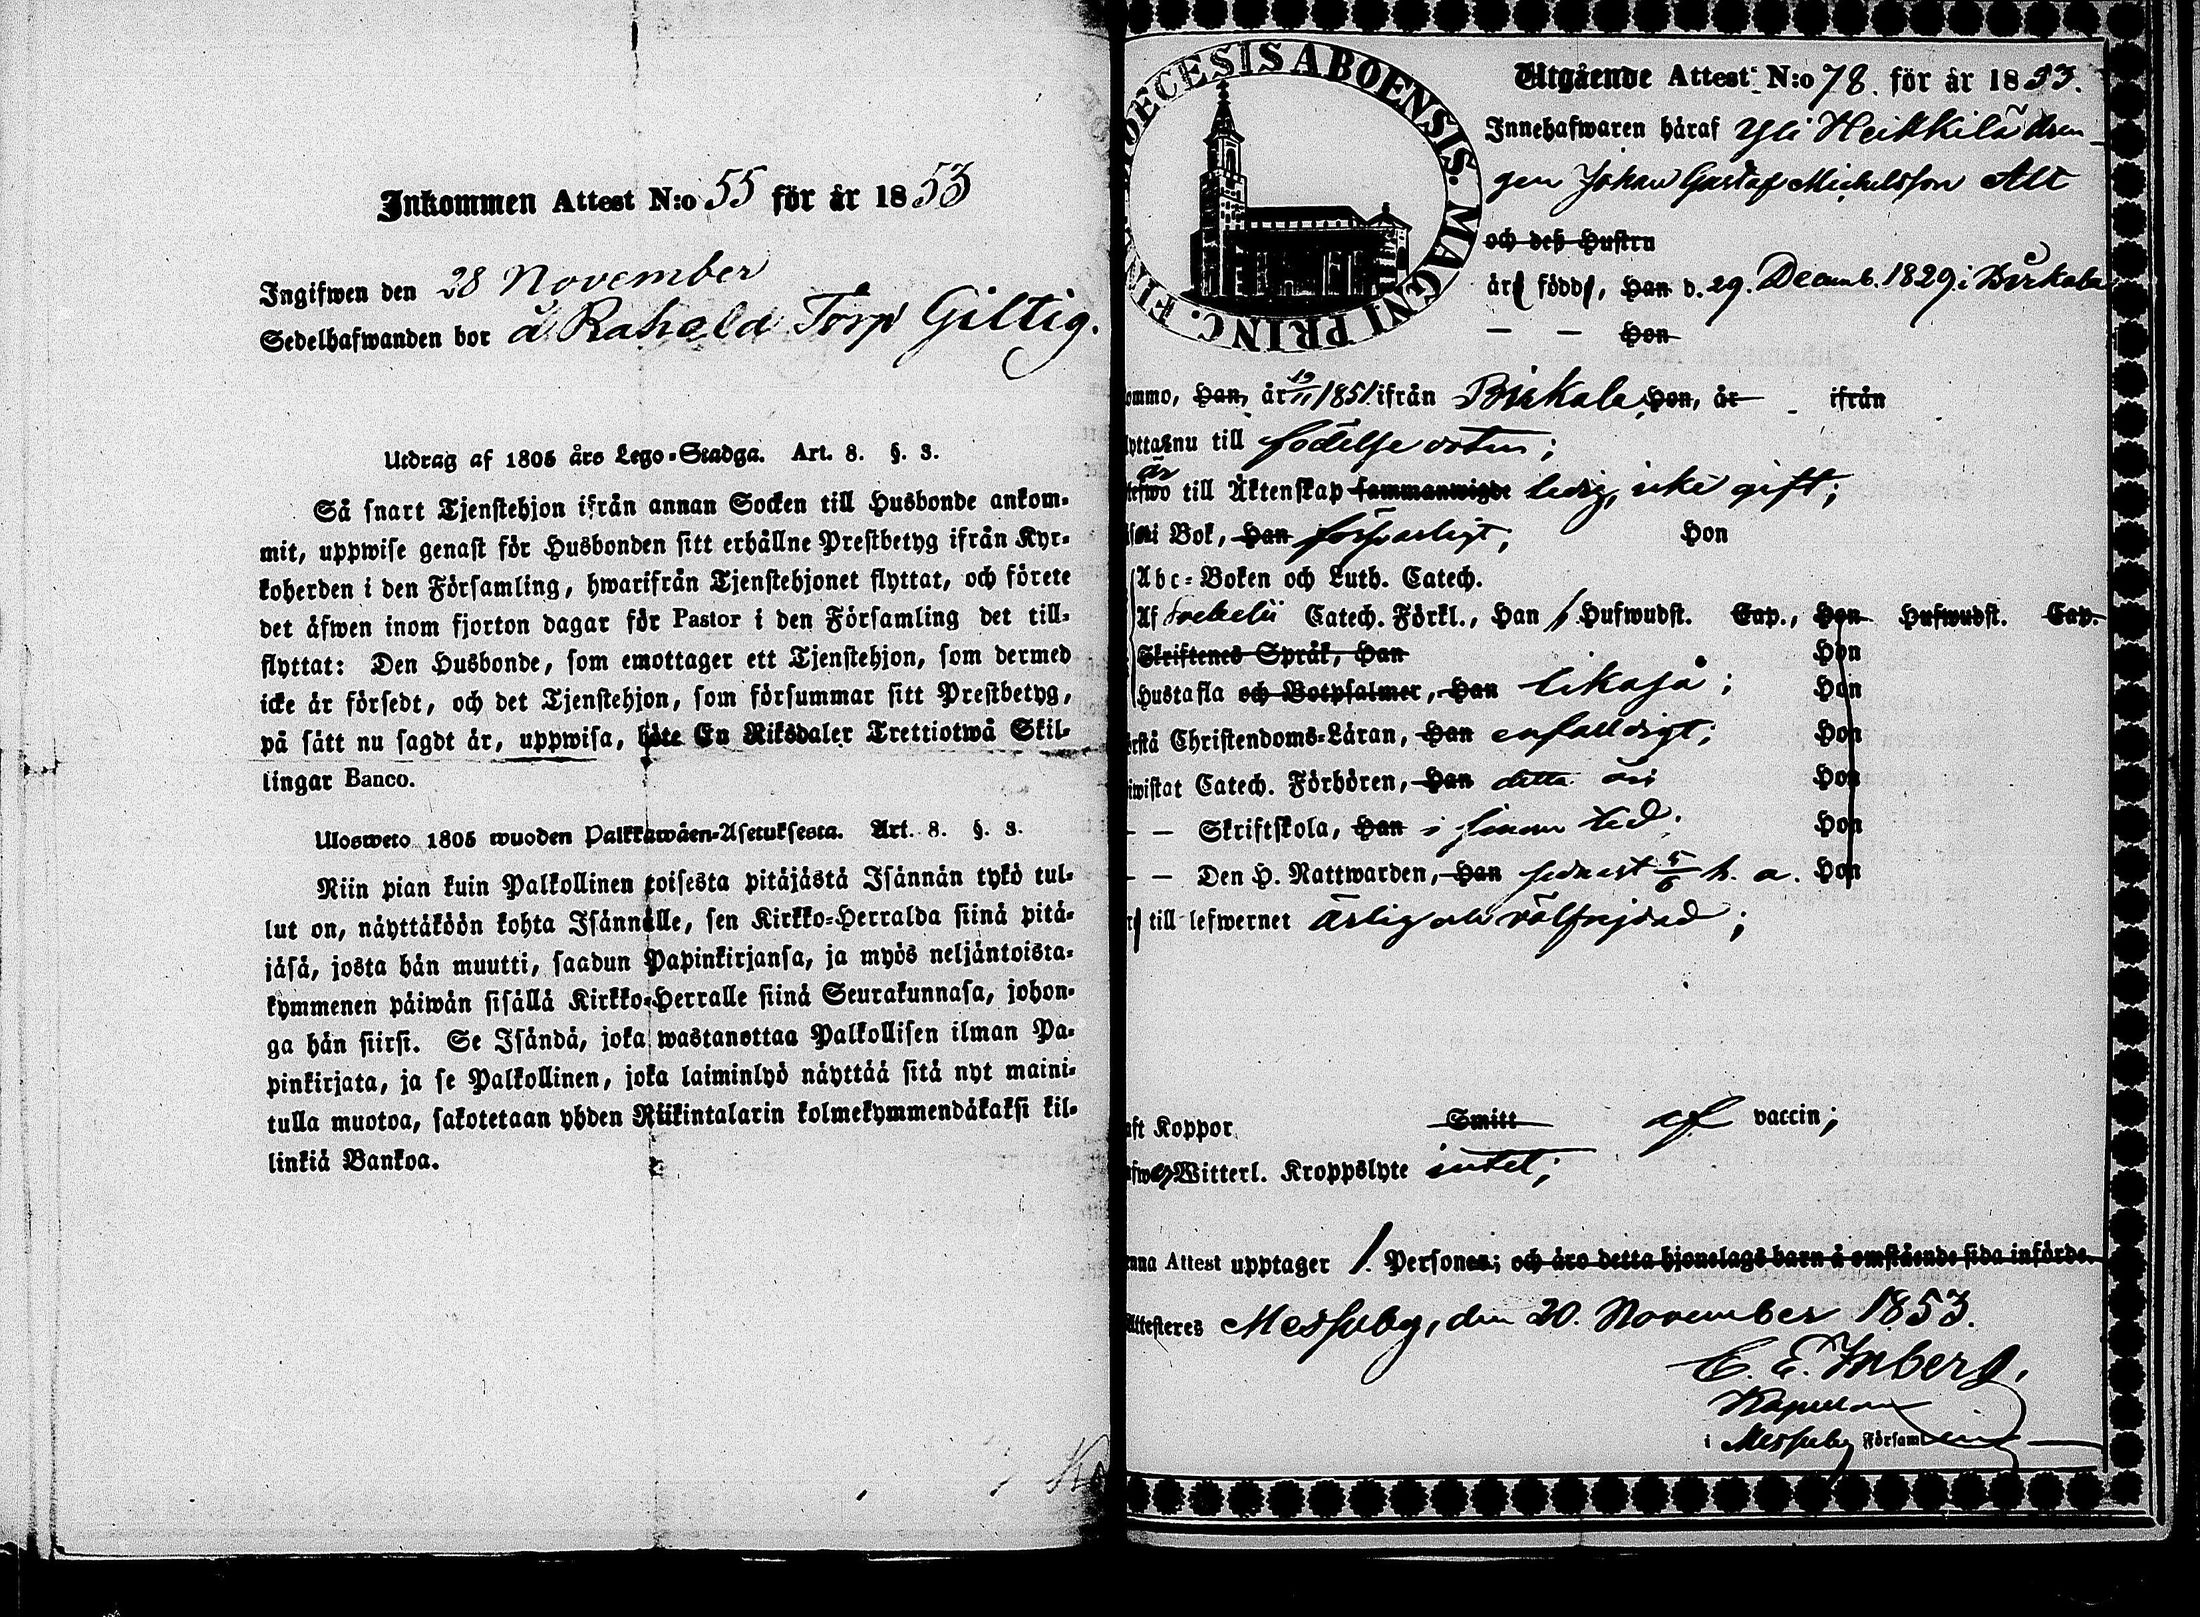 Inkommen Attest N:o 55 för år 1853
Ingifwen den 28 November
Sedelhafwanden bor å Rahola Torp Giltig.
Utdrag af 1805 års Lego-Stadga. Art. 8. §. 3.
Så snart Tjenstehjon ifrån annan Socken till Husbonde ankom-
mit, uppwise genast för Husbonden sitt erhållne Prestbetyg ifrån Kyr-
koherden i den Församling, hwarifrån Tjenstehjonet flyttat, och förete
det äfwen inom fjorton dagar för Pastor i den Församling det till-
flyttat: Den Husbonde, som emottager ett Tjenstehjon, som dermed
icke är försedt, och det Tjenstehjon, som försummar sitt Prestbetyg,
på sätt nu sagdt är, uppwisa, böte En Riksdaler Trettiotwå Skil-
lingar Banco.
Ulosweto 1805 wuoden Palkkawäen-Asetuksesta. Art. 8. §. 3.
Niin pian kuin Palkollinen toisesta pitäjästä Isännän tykö tul-
lut on, näyttäköön kohta Isännälle, sen Kirkko-Herralda siinä pitä-
jäsä, josta hän muutti, saadun Papinkirjansa, ja myös neljäntoista-
kymmenen päiwän sisällä Kirkko-Herralle siinä Seurakunnasa, johon-
ga hän siirsi. Se Isändä, joka wastanottaa Palkollisen ilman Pa-
pinkirjata, ja se Palkollinen, joka laiminlyö näyttää sitä nyt maini-
tulla muotoa, sakotetaan yhden Riikintalarin kolmekymmendäkaksi kil-
linkiä Bankoa.
DIOECESIS ABOENSIS. MAGNI PRINC. FIN
Utgående Attest N:o 78. för år 1853.
Innehafwaren häraf Yli Heikkilä dren-
gen Johan Gustaf Michelsson Alt
och deß Hustru
är född, Han d. 29. Decemb. 1829 i Birkala
— — Hon
ommo, Han, år 19/11 1851 ifrån Birkala, Hon, år ifrån
yttas nu till födelse orten;
lefwo är till Äktenskap sammanwigde ledig, icke gift;
i Bok, Han försvarligt, Hon
Abc-Boken och Luth. Catech.
Af Svebelii Catech. Förkl., Han Hufwudst. Cap., Hon Hufwudst. Cap.
Skriftenes Språk, Han Hon
Hustafla och Botpsalmer, Han likaså; Hon
rstå Christendoms-Läran, Han enfaldigt; Hon
iwistat Catech. Förhören, Han detta år Hon
— — Skriftskola, Han i sinom tid; Hon
— — Den H. Nattwarden, Han sednast 5/6 h. a. Hon
till lefwernet ärlig och välfrejdad;
aft Koppor Smitt af vaccin;
afwa Witterl. Kroppslyte intet;
enna Attest upptager 1. Personer; och äro detta hjonelags barn å omstående sida införde.
Attesteres Messuby, den 20. November 1853.
C. E. Inberg.
Kapellan
i Messuby Församling